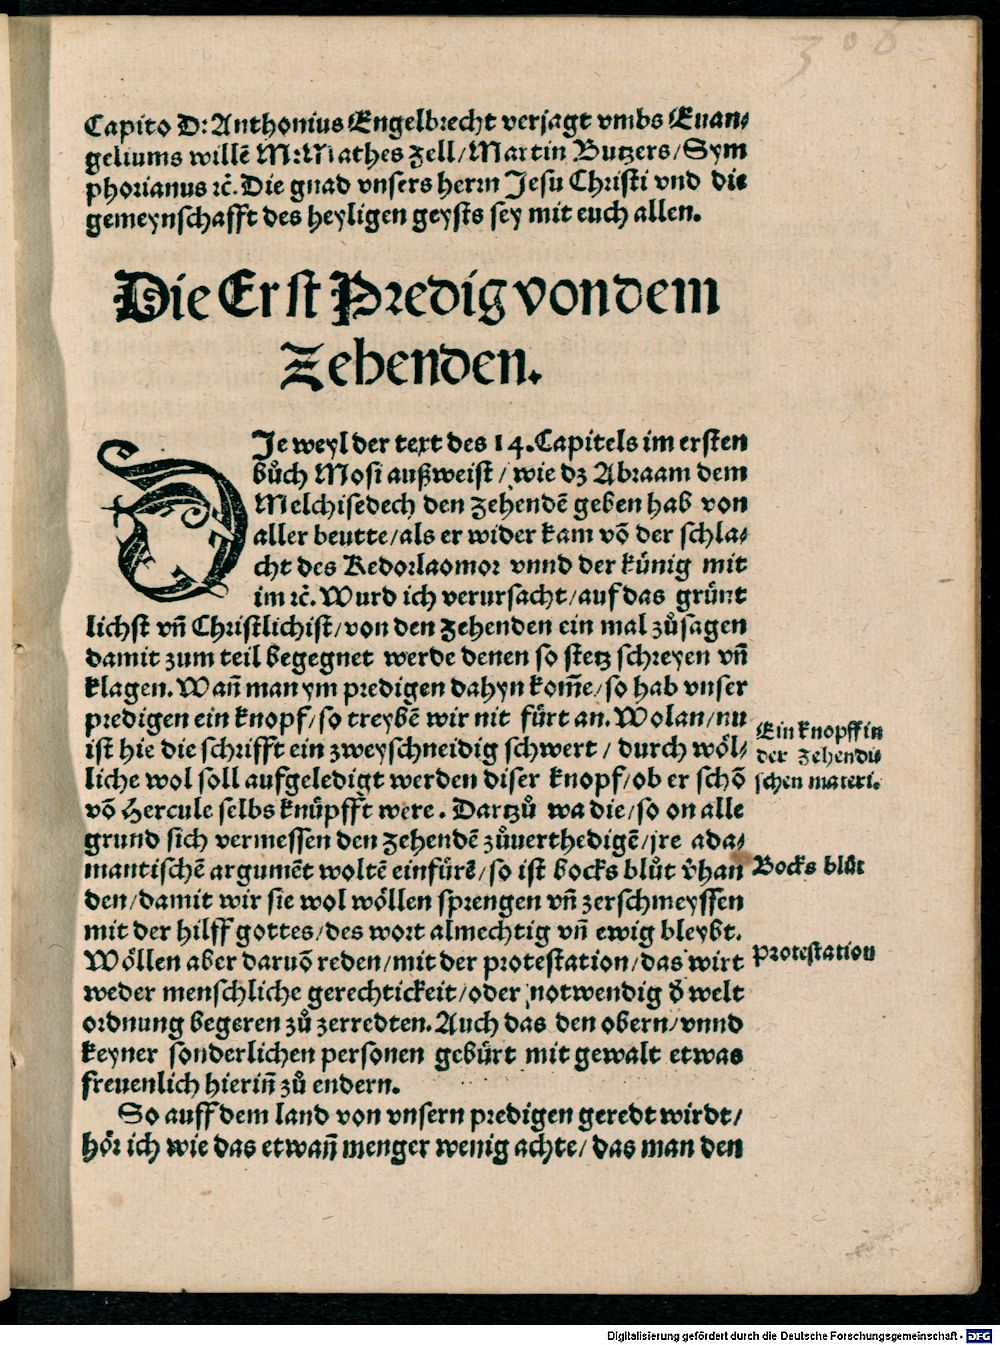 308
Capito D: Anthonius Engelbrecht verjagt vmbs Euan⸗
geliums willẽ M: Mathes Zell/ Martin Butzers/ Sym
phorianus ꝛc̃. Die gnad vnsers herrn Jesu Christi vnd die
gemeynschafft des heyligen geysts sey mit euch allen.
Die Erst Predig von dem
Zehenden.
DJe weyl der text des 14. Capitels im ersten
bůch Mosi außweist/ wie dz Abraam dem
Melchisedech den Zehendẽ geben hab von
aller beutte/ als er wider kam võ der schla⸗
cht des Kedorlaomor vnnd der künig mit
im ꝛc̃. Wurd ich verursacht/ auf das grünt
lichst vñ Christlichist/ von den Zehenden ein mal zůsagen
damit zum teil begegnet werde denen so stetz schreyen vñ
klagen. Wañ man ym predigen dahyn kom̃e/ so hab vnser
predigen ein knopf/ so treybẽ wir nit fürt an. Wolan/ nu
ist hie die schrifft ein zweyschneidig schwert/ durch wöl⸗
liche wol soll aufgeledigt werden diser knopf/ ob er schõ
võ Hercule selbs knüpfft were. Dartzů wa die/ so on alle
grund sich vermessen den Zehendẽ zůuerthedigẽ/ jre ada⸗
mantischẽ argumẽt woltẽ einfürẽ/ so ist bocks blůt v̉han
den/ damit wir sie wol wöllen sprengen vñ zerschmeyssen
mit der hilff gottes/ des wort almechtig vñ ewig bleybt.
Wöllen aber daruõ reden/ mit der protestation/ das wirt
weder menschliche gerechtickeit/ oder notwendig d̉ welt
ordnung begeren zů zerredten. Auch das den obern/ vnnd
keyner sonderlichen personen gebürt mit gewalt etwas
freuenlich hieriñ zů endern.
So auff dem land von vnsern predigen geredt wirdt/
hör ich wie das etwañ menger wenig achte/ das man den
Ein knopff in
der Zehendi⸗
schen materi.
Bocks blůt
Protestation
Digitalisierung gefördert durch die Deutsche Forschungsgemeinschaft - DFG